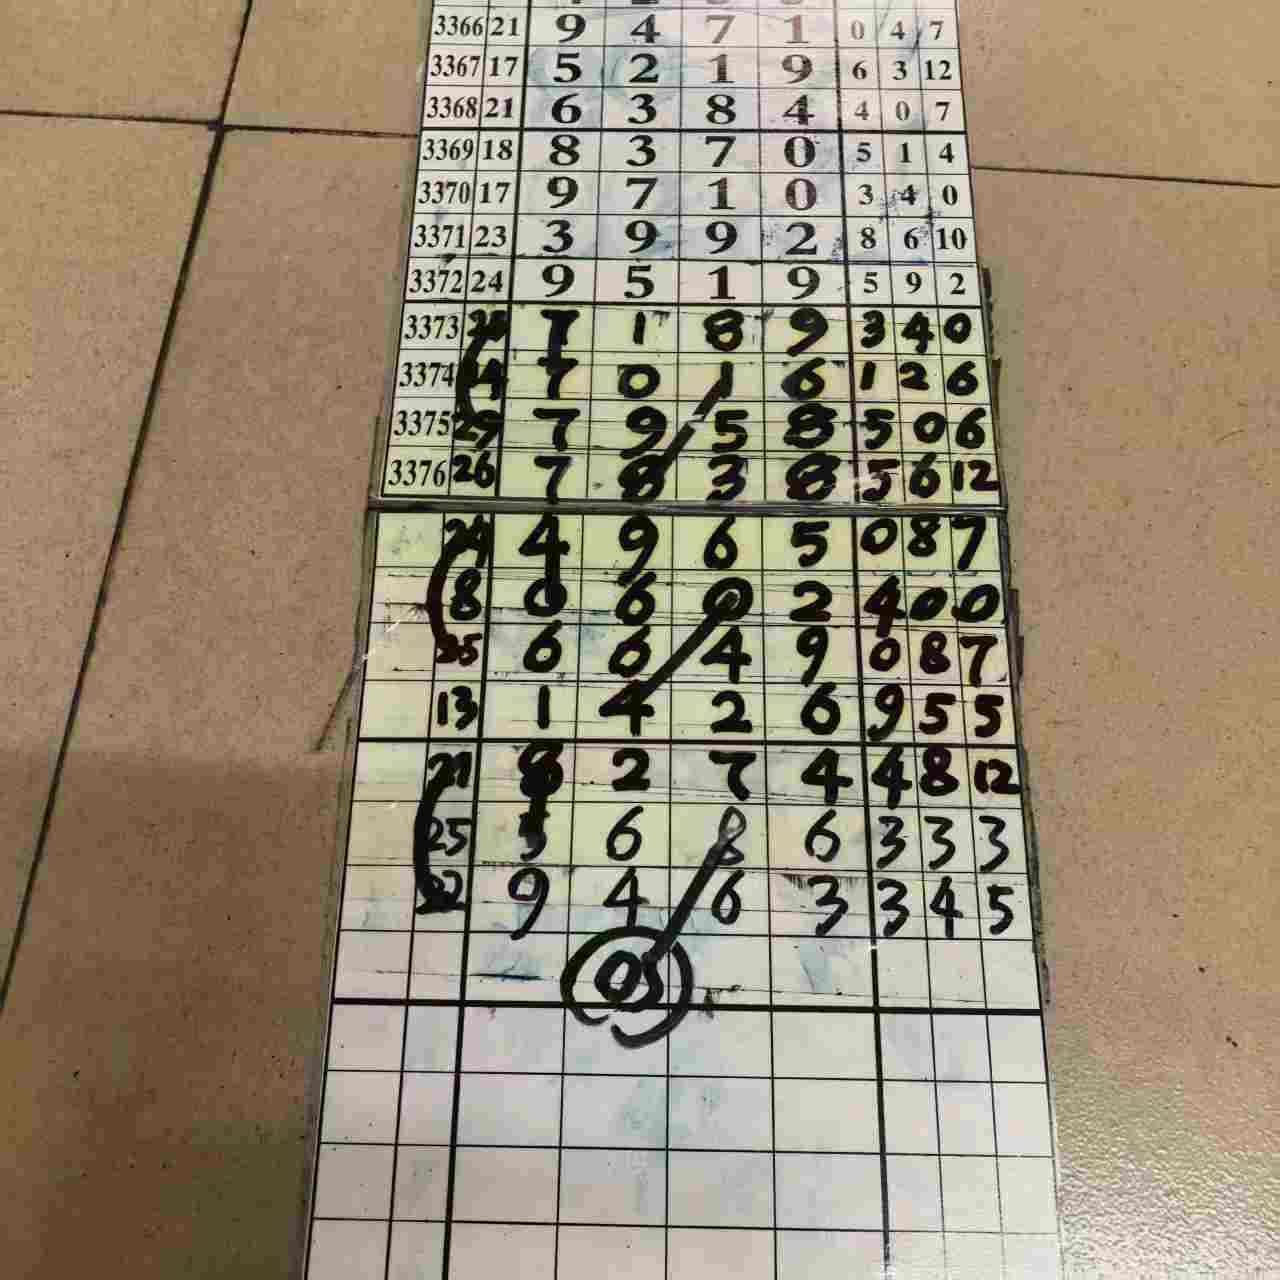 3366 21 9 4 7 1 0 4 7
3367 17 5 2 1 9 6 3 12
3368 21 6 3 8 4 4 0 7
3369 18 8 3 7 0 5 1 4
3370 17 9 7 1 0 3 4 0
3371 23 3 9 9 2 8 6 10
3372 24 9 5 1 9 5 9 2
3373 25 7 1 8 9 3 4 0
3374 14 7 0 1 6 1 2 6
3375 29 7 9 5 8 5 0 6
3376 26 7 8 3 8 5 6 12
24 4 9 6 5 0 8 7
8 0 6 0 2 4 0 0
25 6 6 4 9 0 8 7
13 1 4 2 6 9 5 5
21 8 2 7 4 4 8 12
25 5 6 8 6 3 3 3
22 9 4 6 3 3 4 5
0